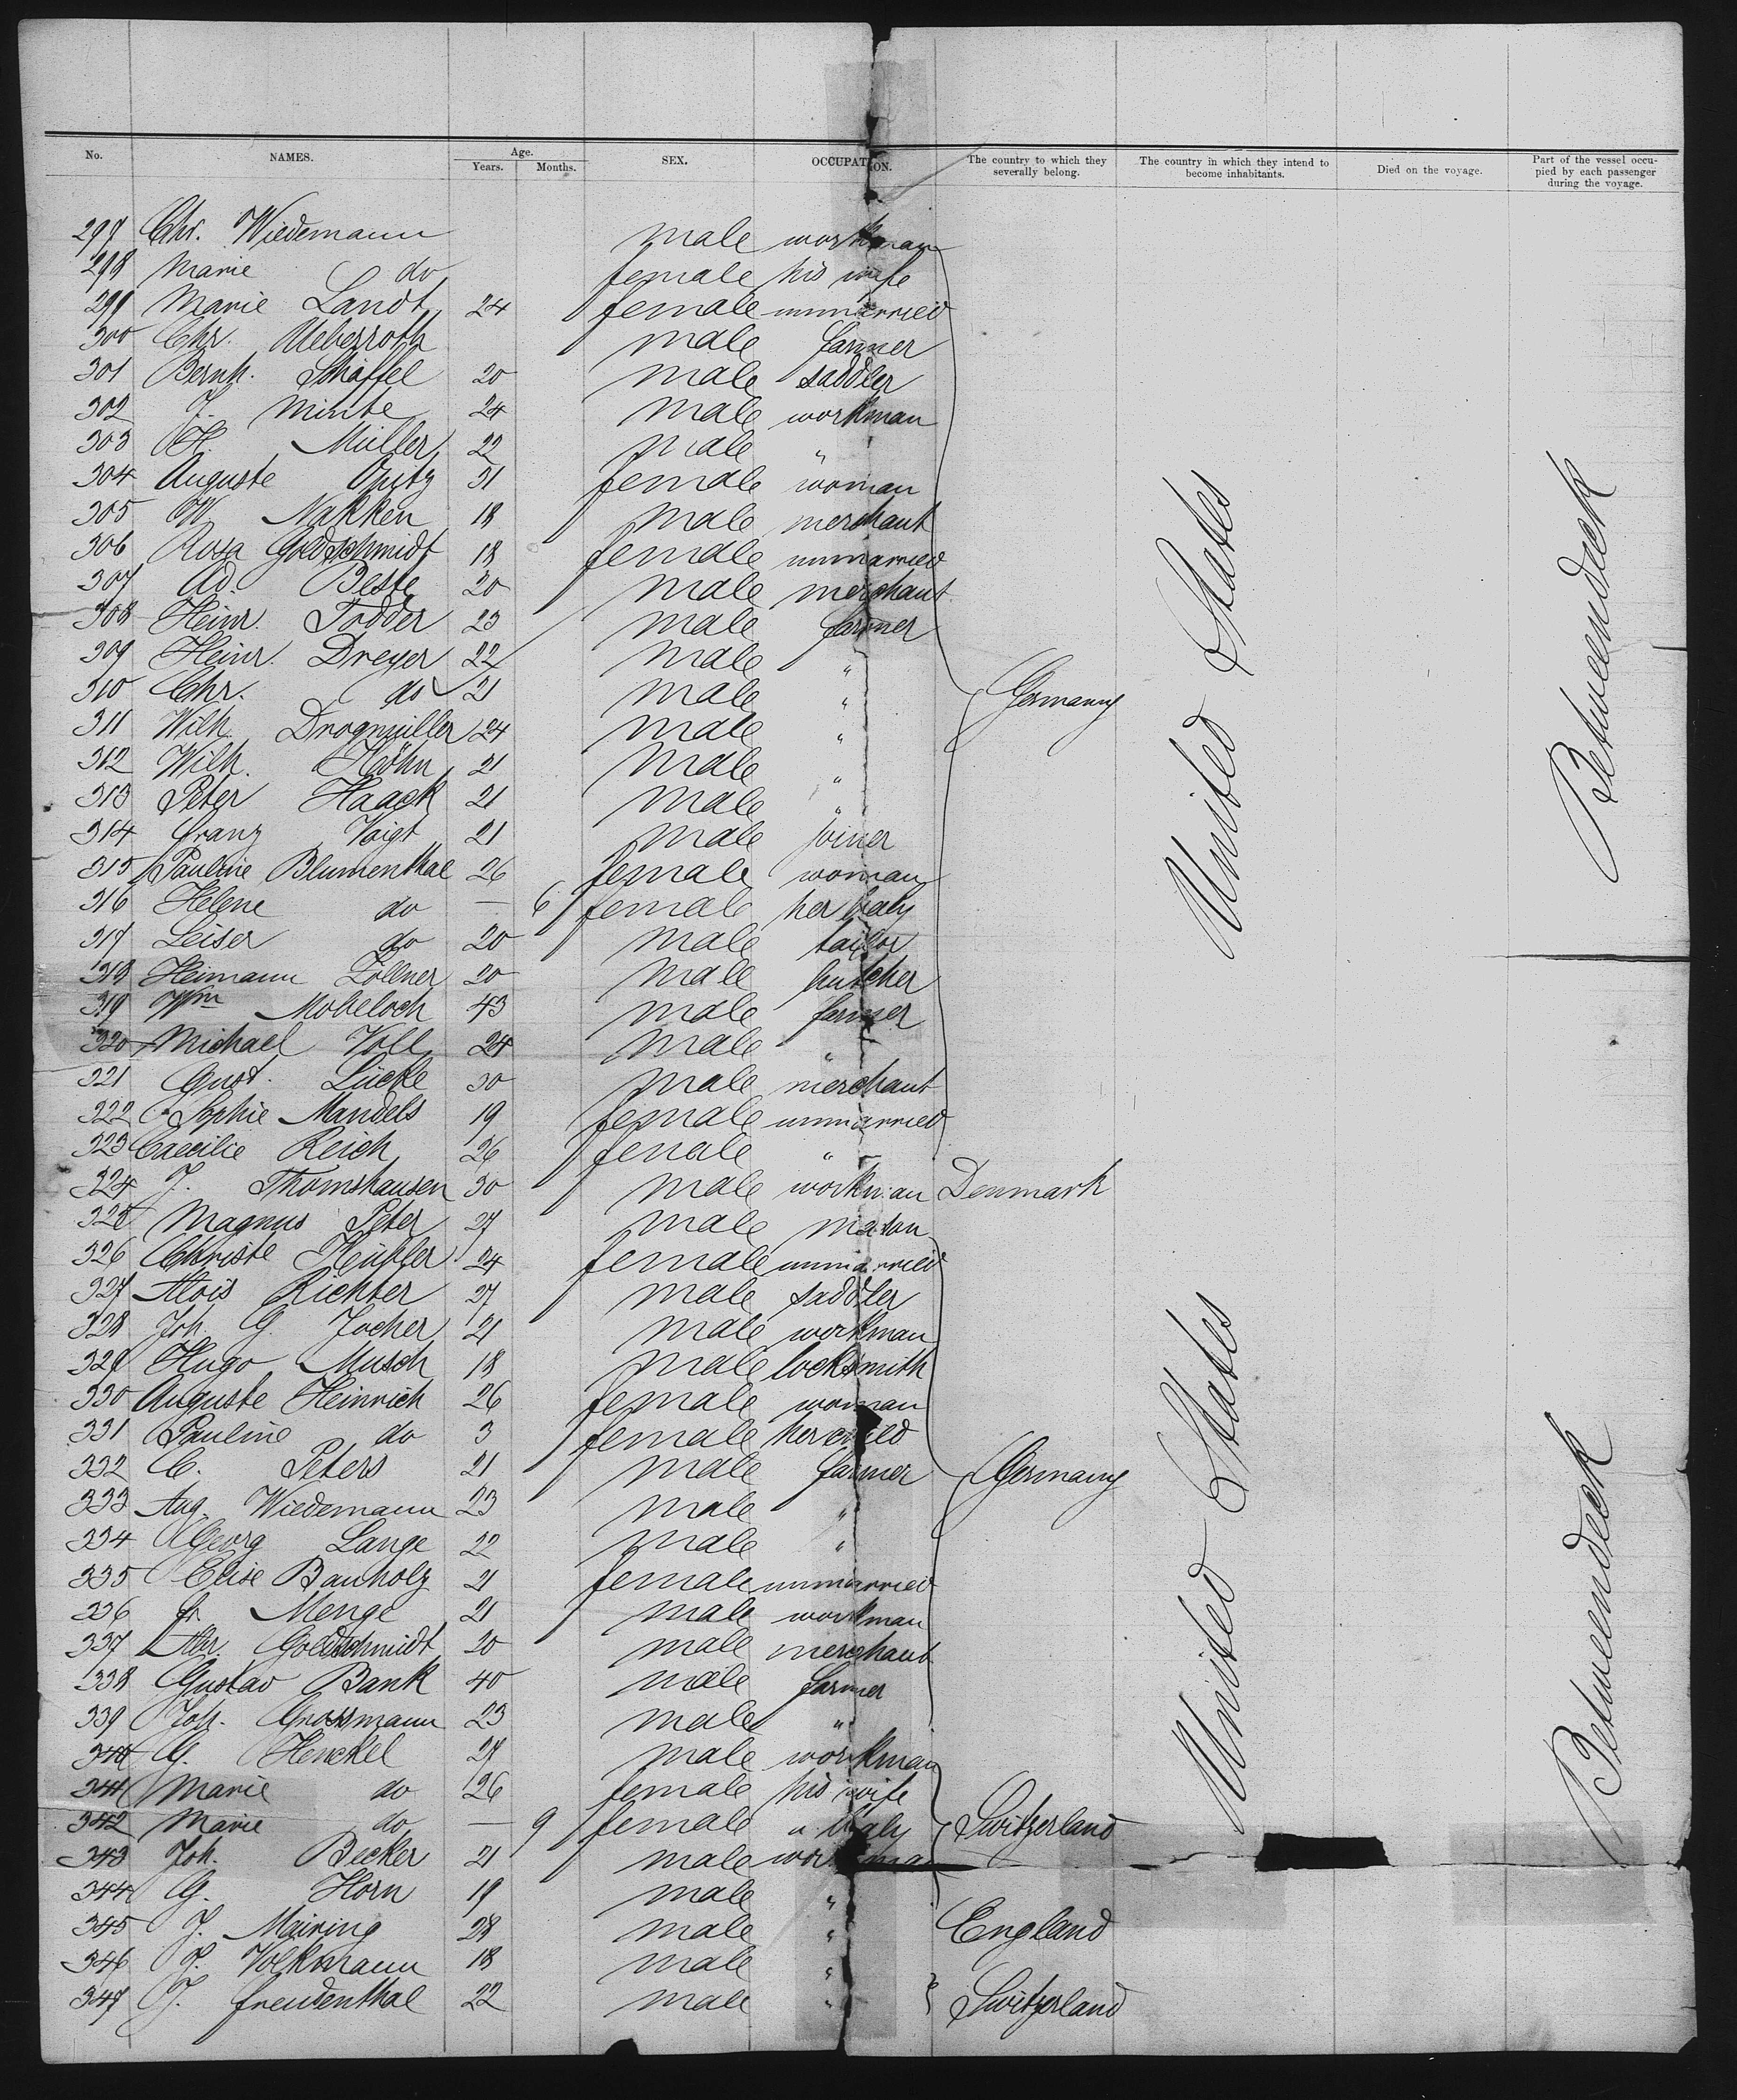 No. NAMES. Age. Years. Months. SEX. OCCUPATION. The country to which they severally belong. The country in which they intend to become inhabitants. Died on the voyage. Part of the vessel occupied by each passenger during the voyage.
297 Chr. Wiedemann male workman
298 Marie do female his wife
299 Marie Landt 24 female unmarried
300 Chr. Ueberroth male farmer
301 Bernh. Schaffel 20 male saddler
302 J. Minte 24 male workman
303 H. Müller 22 male "
304 Auguste Opitz 31 female woman
305 W. Nakken 18 male merchant
306 Rosa Goldschmidt 18 female unmarried
307 Ad. Beste 20 male merchant
308 Heinr. Todder 23 male farmer
309 Heinr. Dreyer 22 male "
310 Chr. do 21 male " Germany United States Betweendeck
311 Wilh. Drogmüller 24 male "
312 Wilh. Höhn 21 male "
313 Peter Haack 21 male "
314 Franz Voigt 21 male joiner
315 Pauline Blumenthal 26 female woman
316 Helene do — 6 female her baby
317 Leiser do 20 male tailor
318 Heimann Zöllner 20 male butcher
319 Wm Mobeloch 43 male farmer
320 Michael Voll 24 male "
321 Gust. Lücke 30 male merchant
322 Sophie Mandels 19 female unmarried
323 Caecilie Reich 26 female "
324 J. Thomshausen 30 male workman Denmark
325 Magnus Peter 27 male mason
326 Christe Hübler 24 female unmarried
327 Alois Richter 27 male saddler
328 Joh. G. Jocher 21 male workman
329 Hugo Musch 18 male locksmith
330 Auguste Heinrich 26 female woman
331 Pauline do 3 female her child
332 C. Peters 21 male farmer Germany United States Betweendeck
333 Aug. Wiedemann 23 male "
334 Georg Lange 22 male "
335 Elise Bauholz 21 female unmarried
336 Fr. Menge 21 male workman
337 Alex Goldschmidt 20 male merchant
338 Gustav Bank 40 male farmer
339 Joh. Grossmann 23 male "
340 G. Henckel 27 male workman
341 Marie do 26 female his wife
342 Marie do — 9 female " baby Switzerland
343 Joh. Becker 21 male workman
344 G. Horn 19 male "
345 J. Meiring 28 male " England
346 P. Volkmann 18 male "
347 J. Freudenthal 22 male " Switzerland